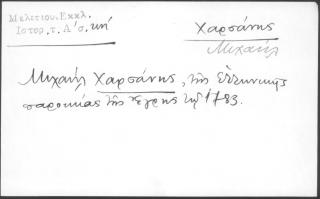 Μελετίου.Εκκλ.
Ιστορ.τ.Α΄σ.κηί
Χαρσάνης
Μιχαήλ
Μιχαήλ Χαρσάνης, της Ελληνικής
παροικίας της Έγρης τω 1783.